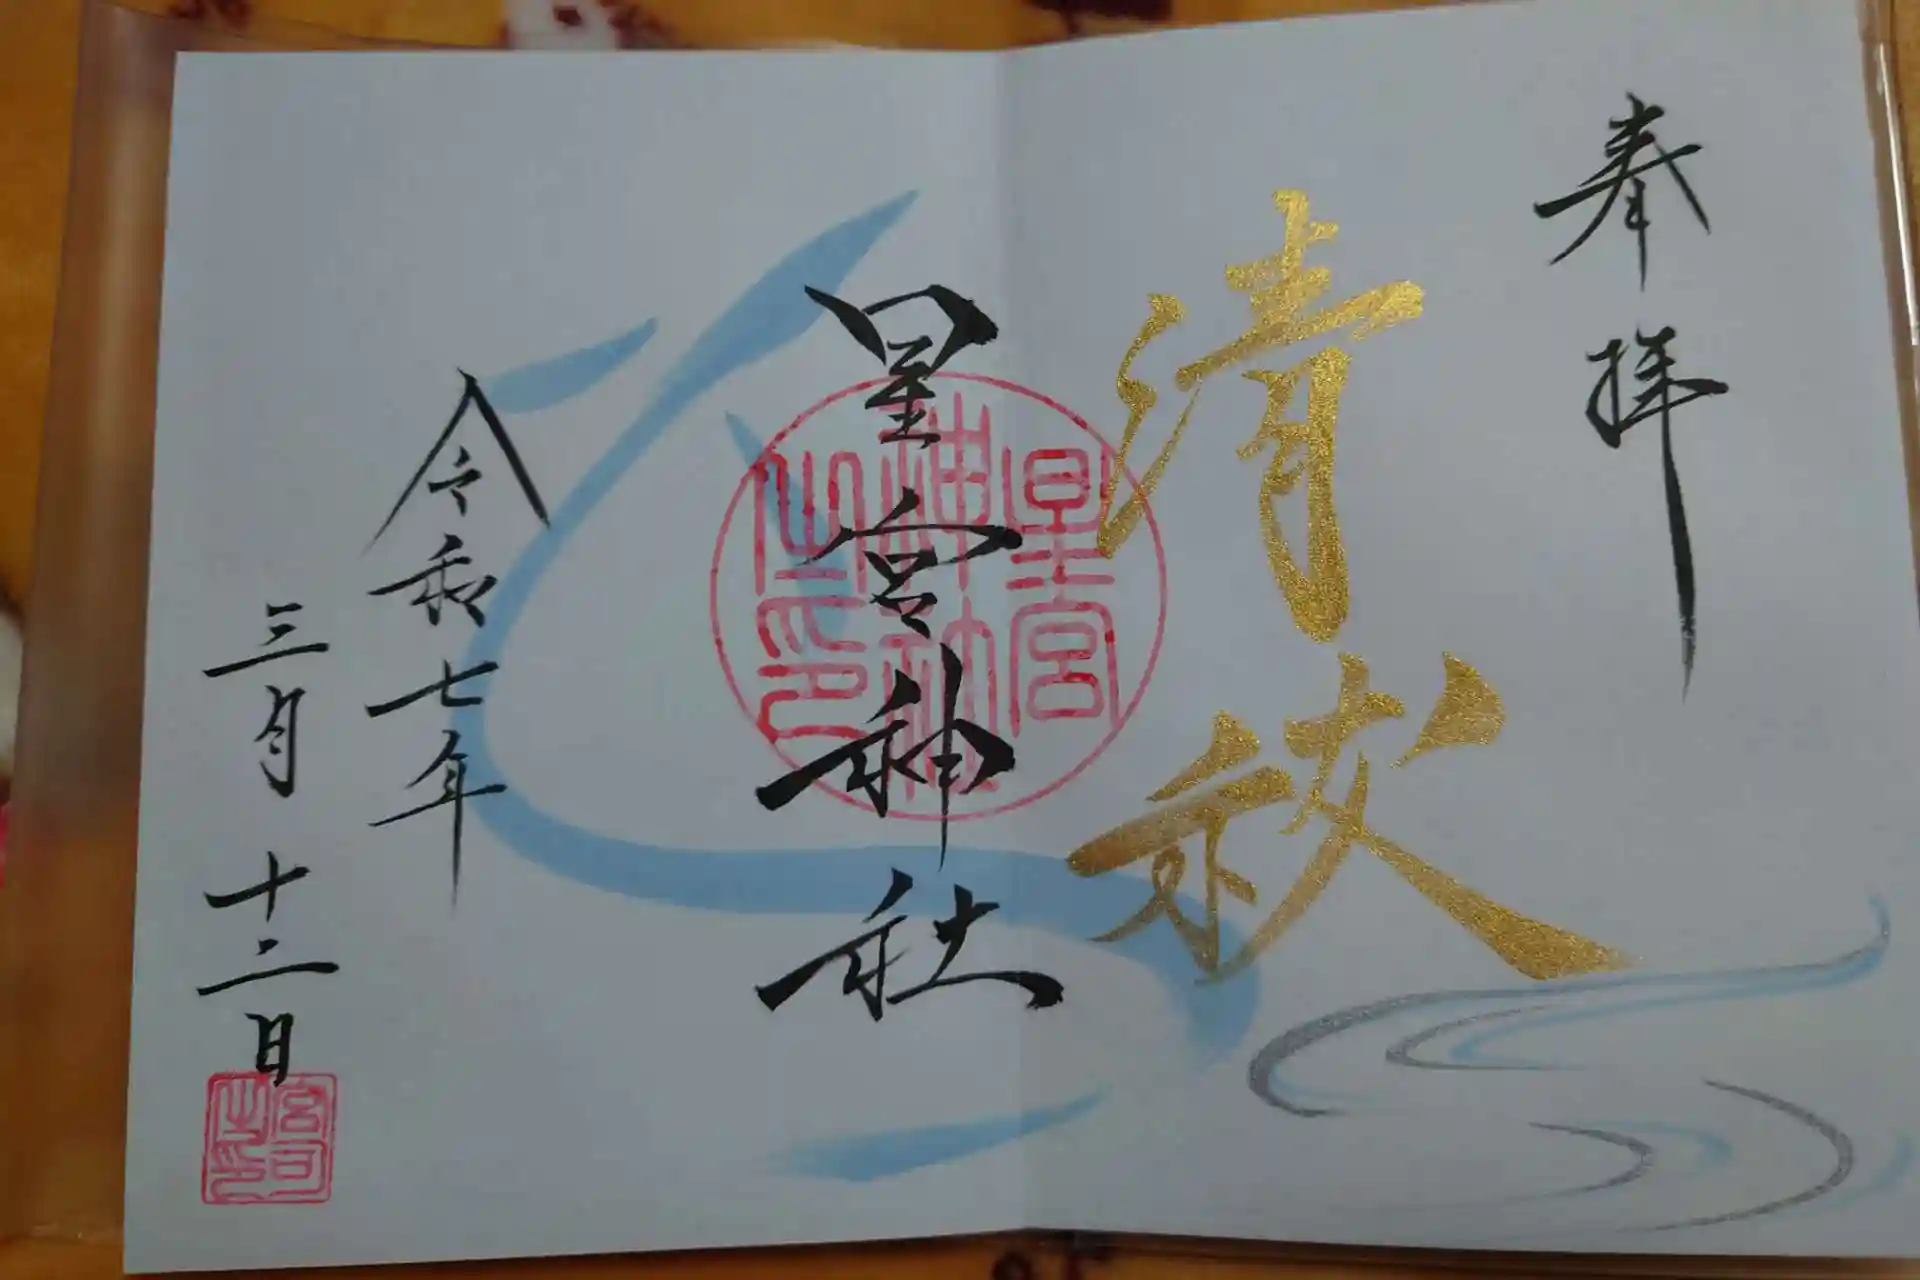 奉拝
清祓
星宮神社
星宮神社之印
令和七年
三月十二日
宮司之印